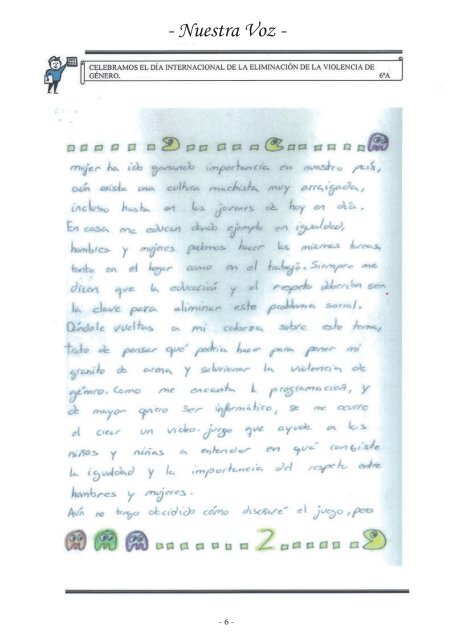 - Nuestra Voz -
CELEBRAMOS EL DÍA INTERNACIONAL DE LA ELIMINACIÓN DE LA VIOLENCIA DE
GÉNERO. 6ºA
mujer ha ido ganando importancia en nuestro país,
aún existe una cultura machista muy arraigada,
incluso hasta en los jóvenes de hoy en día.
En casa me educan dando ejemplo en igualdad,
hombres y mujeres podemos hacer las mismas tareas,
tanto en el hogar como en el trabajo. Siempre me
dicen que la educación y el respeto deberían ser
la clave para eliminar este problema social.
Dándole vueltas a mi cabeza sobre este tema,
trato de pensar qué podría hacer para poner mi
granito de arena y solucionar la violencia de
género. Como me encanta la programación, y
de mayor quiero ser informático, se me ocurre
el crear un video-juego que ayude a los
niños y niñas a entender en qué consiste
la igualdad y la importancia del respeto entre
hombres y mujeres.
Aún no tengo decidido cómo diseñaré el juego, pero
2
- 6 -